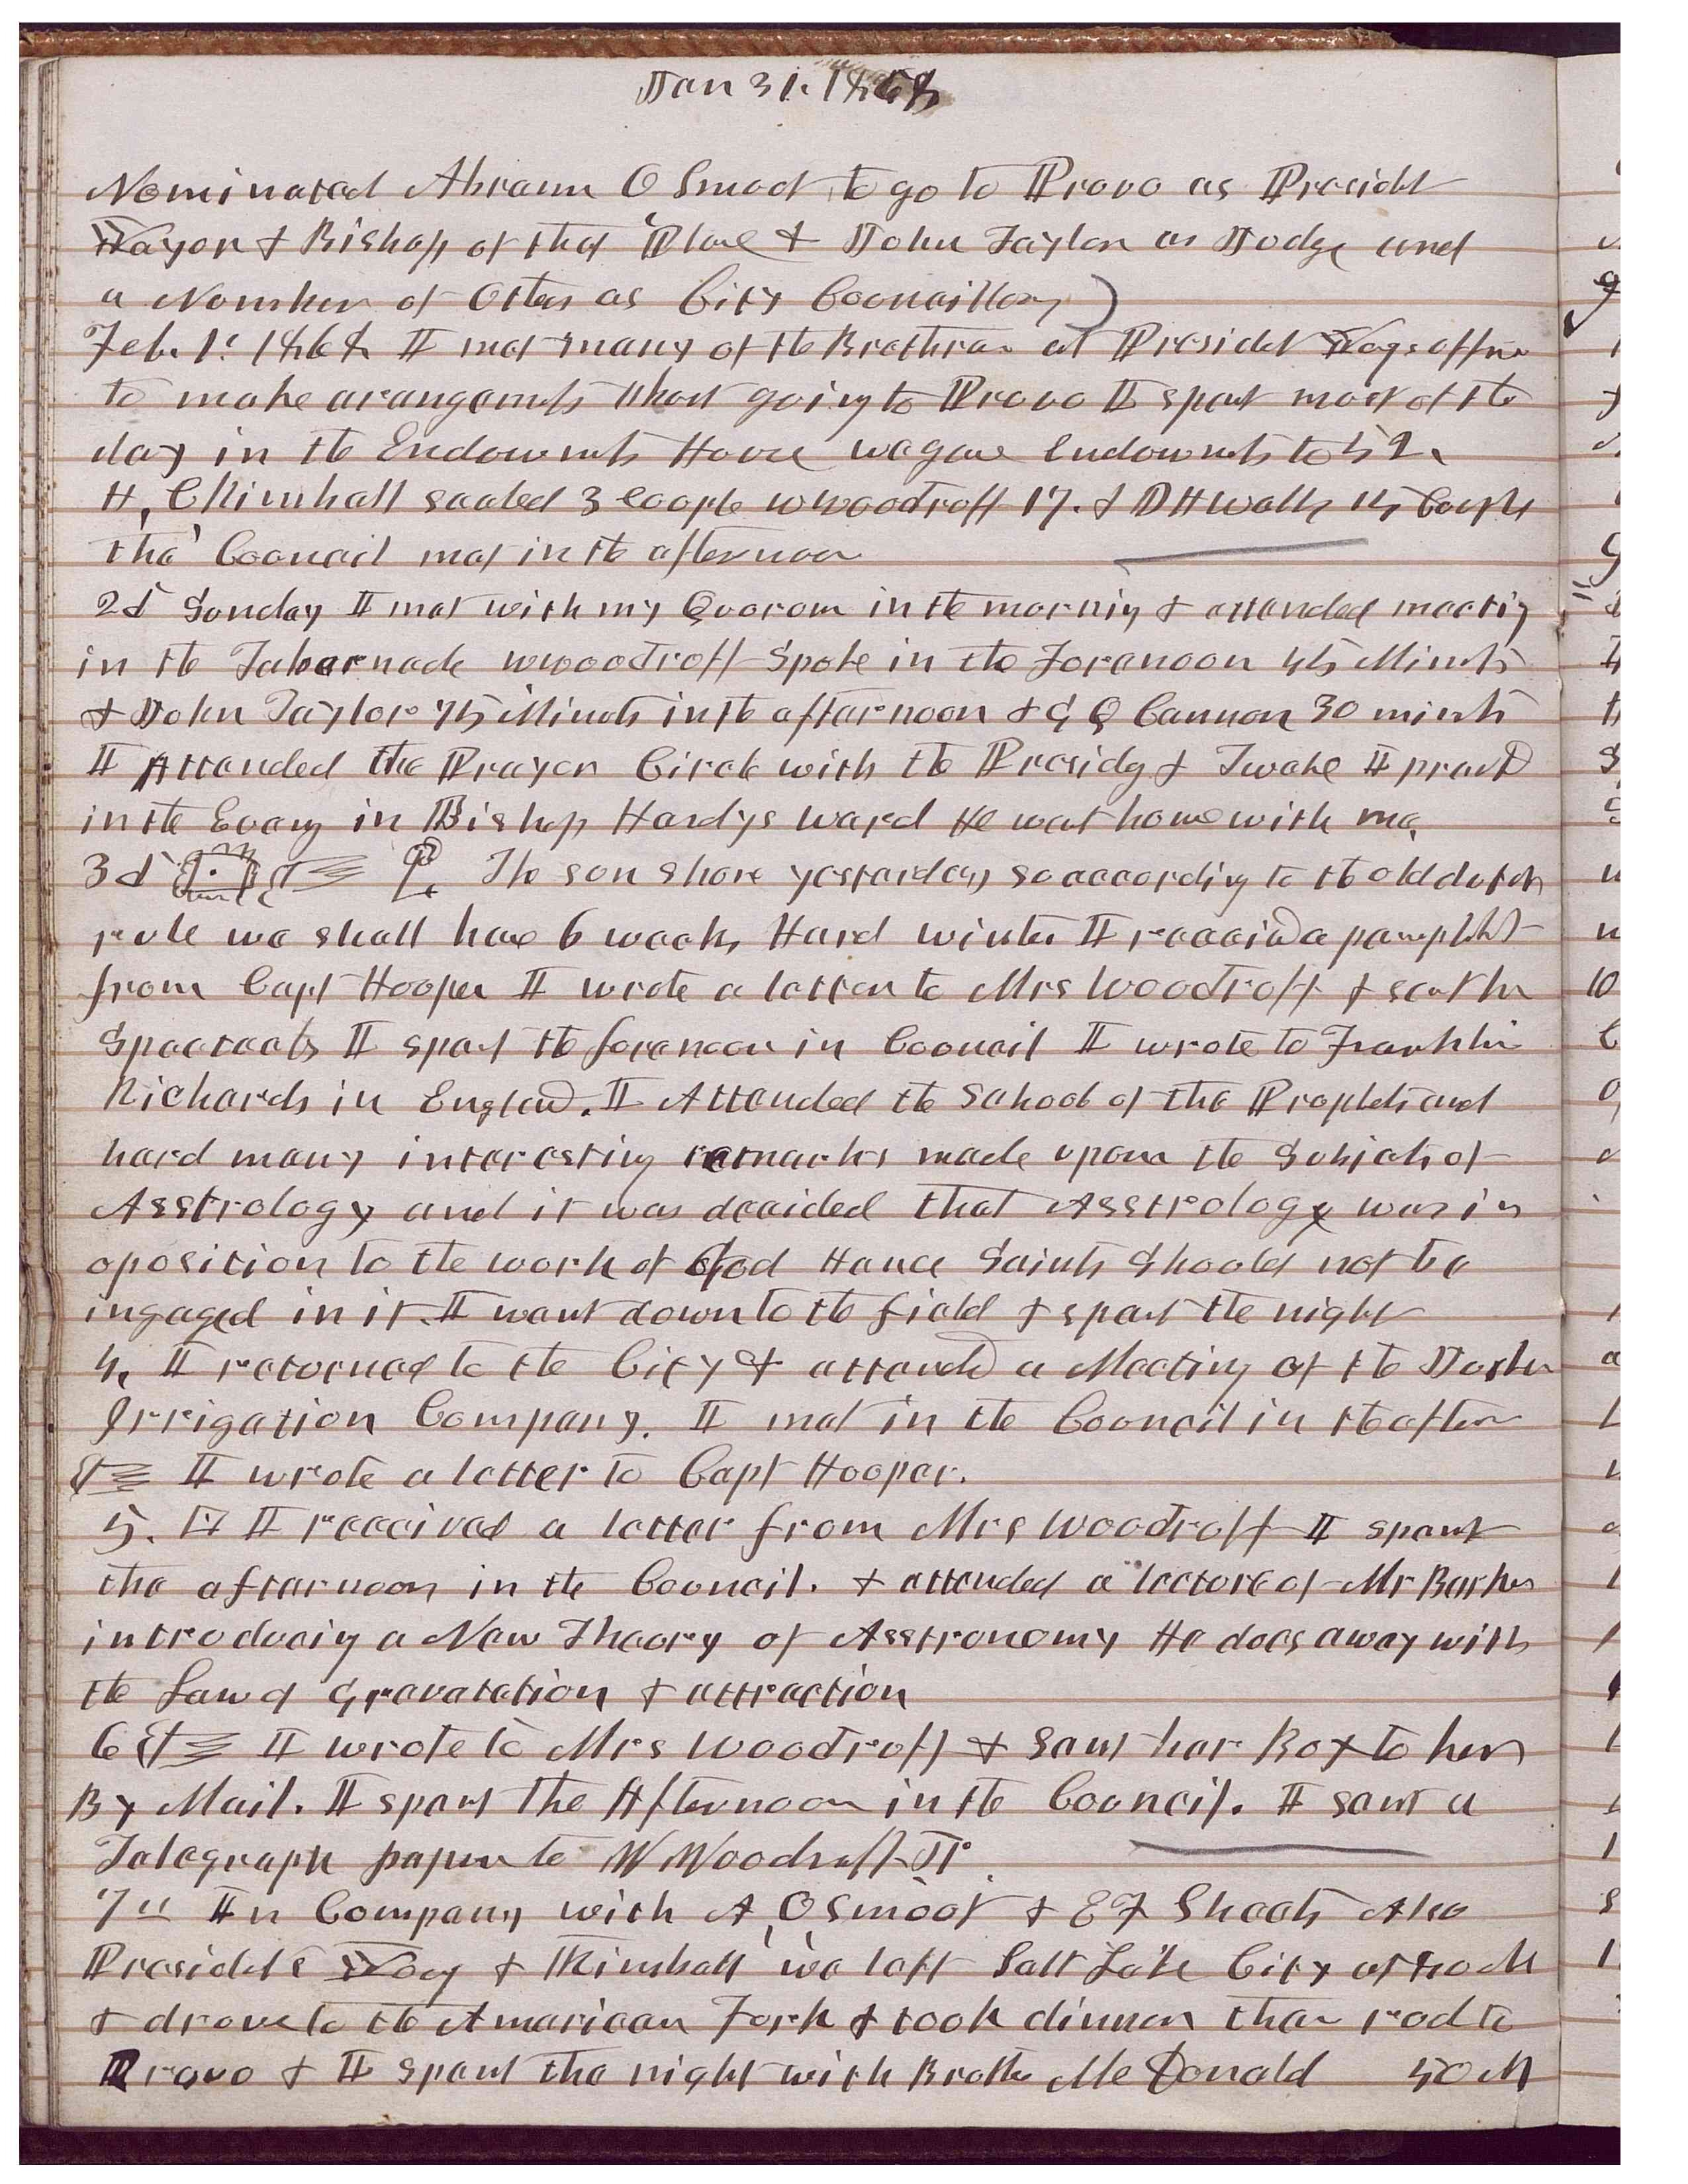 Jan 31. 1868
Nominated Abram O Smoot to go to Provo as Presidet
Mayor & Bishop of that Place & John Taylor as Judge and
a Number of Others as City Councillors)
Feb. 1. 1868 I met many of the Brethren at Presidet Youngs office
to make arangemets about going to Provo I spent most of the
day in the Endowmets House we gave Endowmets to 52.
H, C Kimball sealed 3 couple W Woodruff 17. & D H Wells 15 Couple
the Council met in the afternoon
2d Sunday I met with my Quorum in the morning & attended meeting
in the Tabernacle W Woodruff Spoke in the Forenoon 45 Minuts
& John Taylor 75 Minuts in the afternoon & G Q Cannon 30 minuts
I Attended the Prayer Circle with the Presidy & Twelve I preachd
in the Eveng in Bishop Hardys Ward He went home with me,
3d The sun shone yesterday so according to the old dutch
rule we shall have 6 weeks Hard winter I received a pamphlet
from Capt Hooper I wrote a letter to Mrs Woodruff & sent her
Spectacts I spent the forenoon in Council I wrote to Franklin
Richards in England. I Attended the School of the Prophets and
hard many interesting remarks made upon the Subjets of
Asstrology and it was decided that Asstrology was in
oposition to the work of God Hence Saints Should not be
ingaged in it. I went down to the field & spent the night
4, I returned to the City & attendd a Meeting of the Jordan
Irrigation Company. I met in the Council in the aftern
I wrote a letter to Capt Hooper.
5. I received a letter from Mrs Woodruff I spent
the afternoon in the Council. & attended a lecture of Mr Barker
introducing a New Theory of Asstronomy He does away with
the Law of Gravatation & attraction
6 I wrote to Mrs Woodruff & sent her Box to her
By Mail. I spent the Afternoon in the Council. I sent a
Telegraph paper to W Woodruff Jr.
7th In Company with A, O Smoot & E F Sheets Also
Presidets Young & Kimball we left Salt Lake City at
& drove to the American Fork & took dinner then rod to
Provo & I spent the night with Brother McDonald 50 M